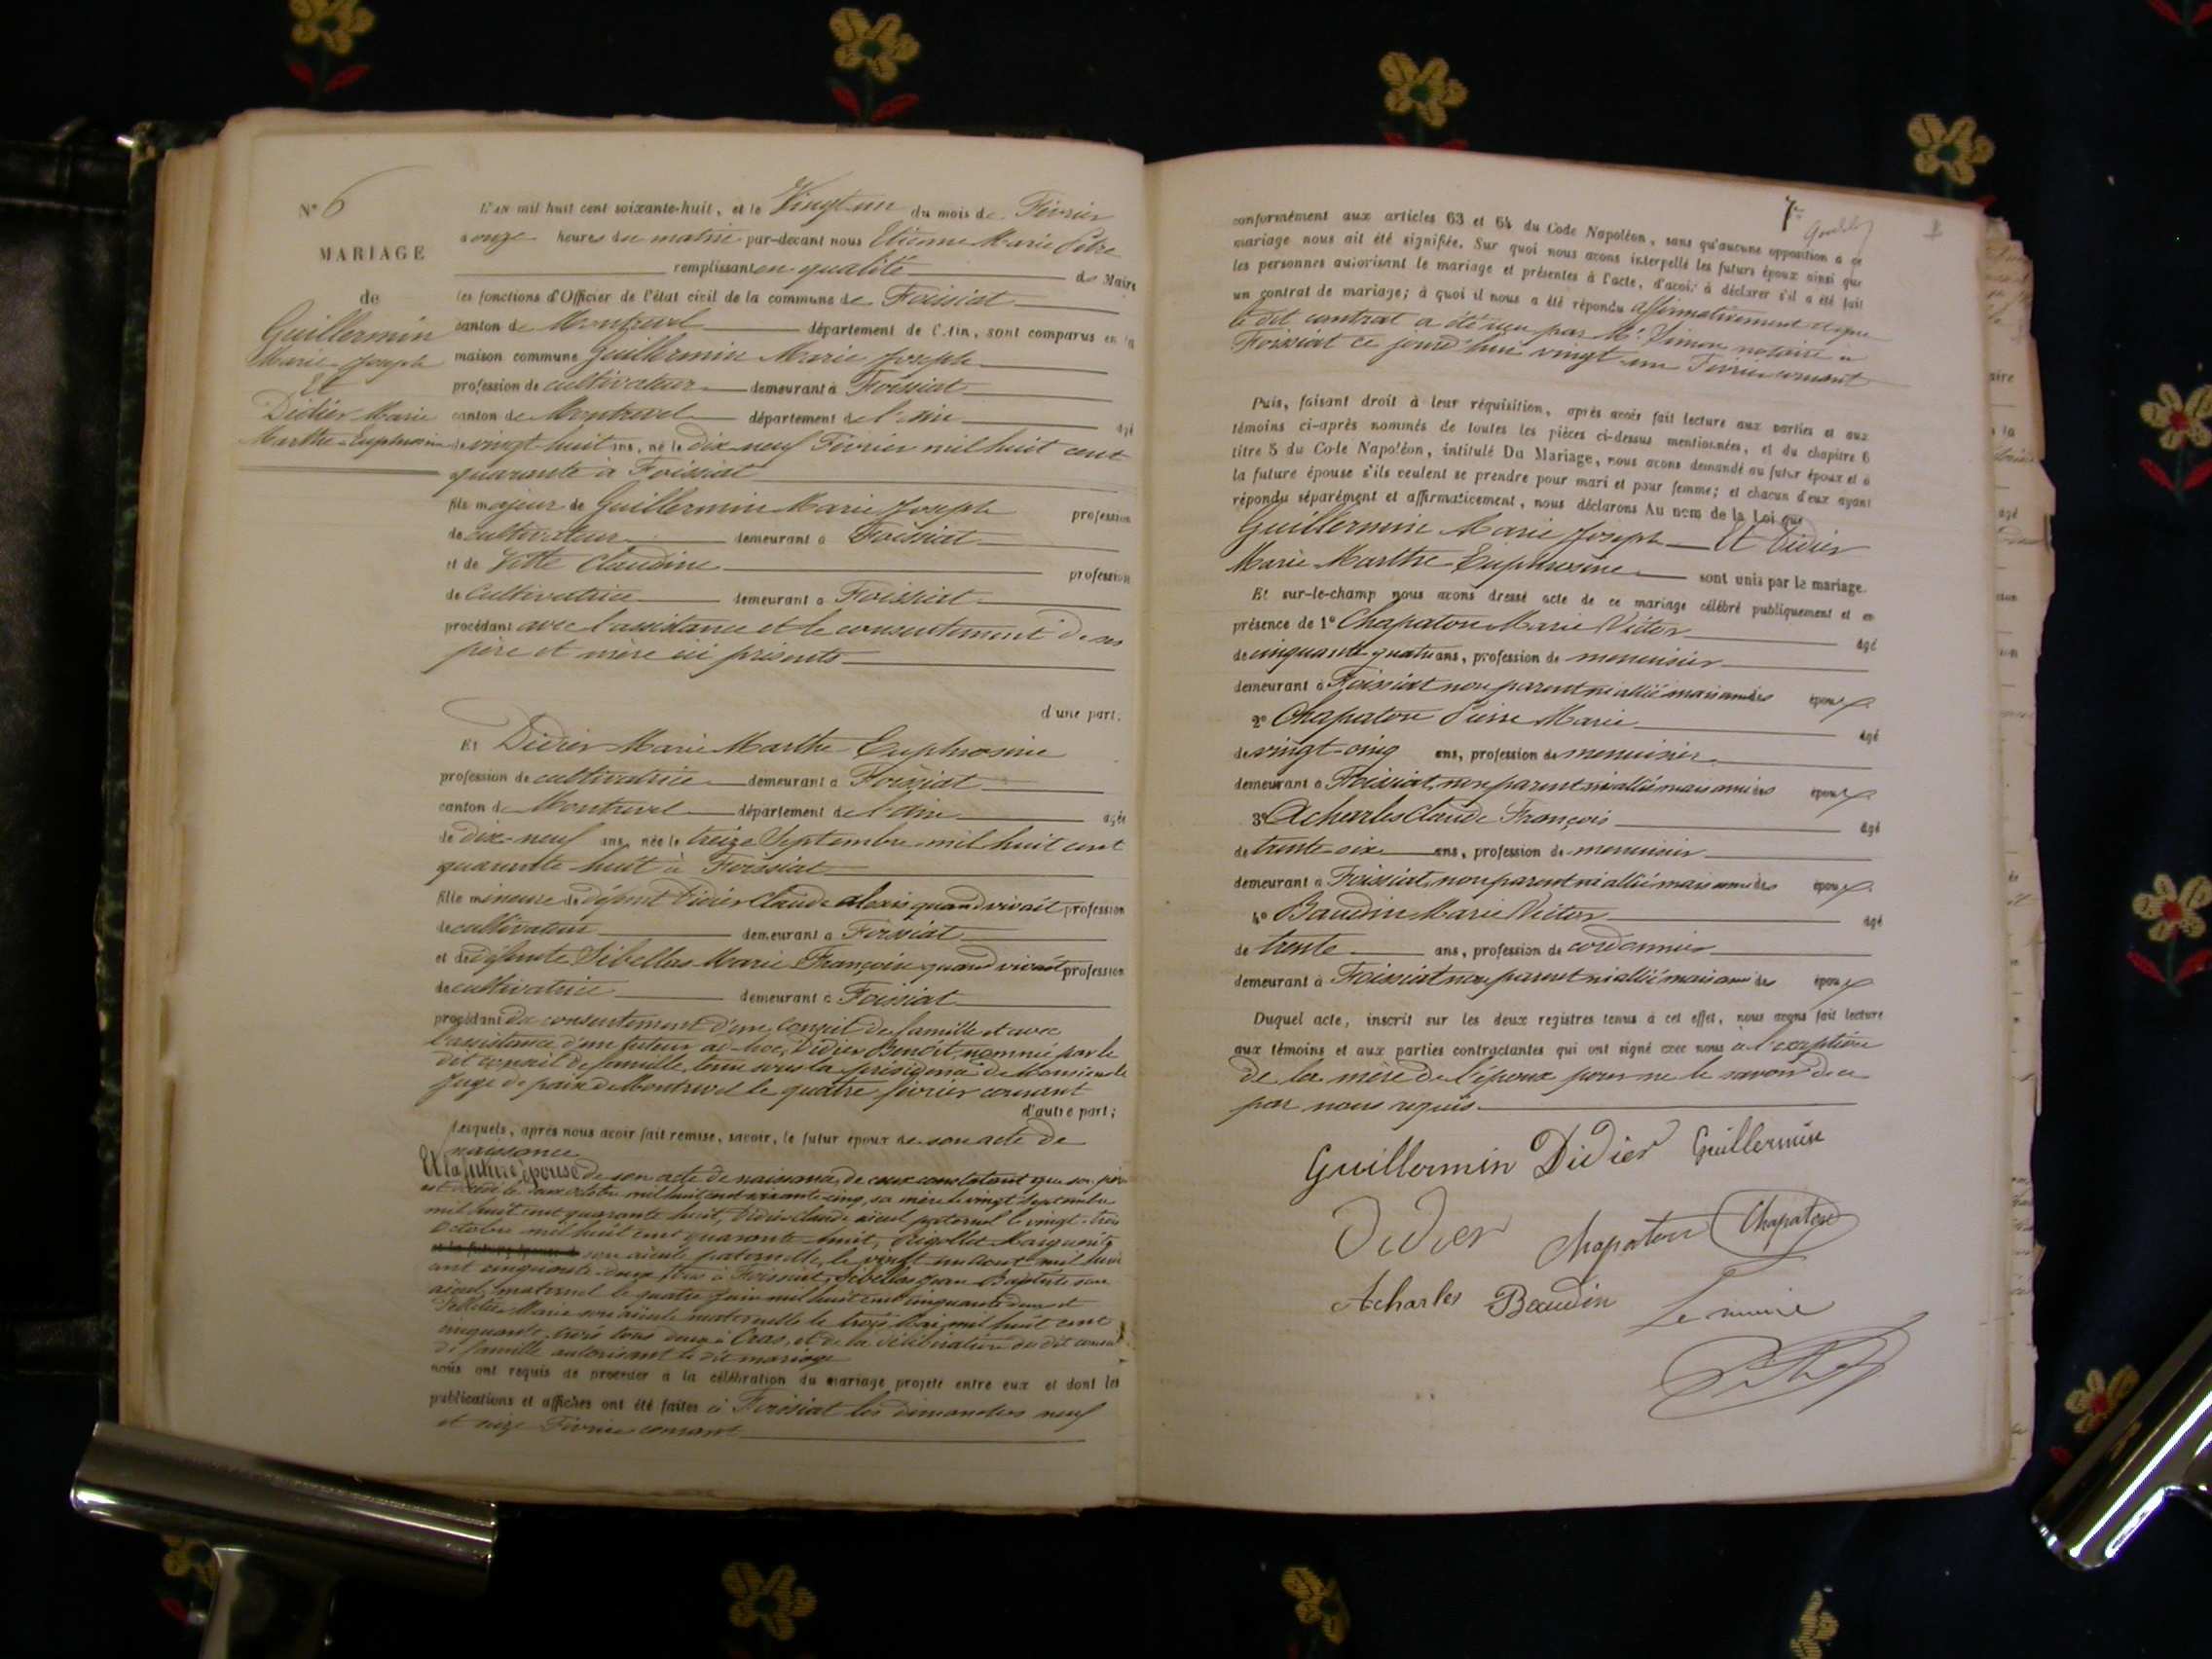 N° 6
MARIAGE
de
Guillermin
Marie Joseph
Et
Didier Marie
Marthe Euphrosine
L'AN mil huit cent soixante-huit, et le Vingt un du mois de Février
à onze heures du matin par-devant nous Etienne Marie
remplissant en qualité de Maire
les fonctions d'Officier de l'état civil de la commune de Foissiat
canton de Montrevel département de l'Ain, sont comparus en la
maison commune Guillermin Marie Joseph
profession de cultivateur demeurant à Foissiat
canton de Montrevel département de l'ain âgé
de vingt huit ans, né le dix neuf Février mil huit cent
quarante à Foissiat
fils majeur de Guillermin Marie Joseph profession
de cultivateur demeurant à Foissiat
et de Vitte Claudine profession
de Cultivatrice demeurant à Foissiat
procédant avec l'assistance et le consentement de ses
père et mère ici présents
d'une part.
Et Didier Marie Marthe Euphrosine
profession de cultivatrice demeurant à Foissiat
canton de Montrevel département de l'ain âgée
de dix-neuf ans, née le treize Septembre mil huit cent
quarante huit à Foissiat
fille mineure de défunt Didier Claude alexis quand vivait profession
de cultivateur demeurant à Foissiat
et de défunte Sibellas Marie Françoise quand vivait profession
de cultivatrice demeurant à Foissiat
procédant du consentement d'un conseil de famille et avec
l'assistance d'un tuteur ad-hoc, Didier Benoit, nommé par le
dit conseil de famille, tenu sous la présidence de Monsieur le
Juge de paix de Montrevel le quatre février courant
d'autre part;
Lesquels, après nous avoir fait remise, savoir, le futur époux de son acte de
naissance
Et la future épouse de son acte de naissance, de ceux constatant que son père
est décédé le deux octobre mil huit cent soixante cinq, sa mère le vingt Septembre
mil huit cent quarante huit, Didier Claude aïeul paternel le vingt-trois
Octobre mil huit cent quarante huit, Rigollet Marguerite
son aïeule paternelle, le vingt un aout mil huit
cent cinquante deux tous à Foissiat, Sibellas Jean Baptiste son
aïeul maternel le quatre juin mil huit cent cinquante deux et
Marie son aïeule maternelle le trois Mai mil huit cent
cinquante trois tous deux à Cras, et de la délibération du dit conseil
de famille autorisant le dit mariage
nous ont requis de procéder à la célébration du mariage projeté entre eux et dont les
publications et affiches ont été faites à Foissiat les dimanches neuf
et seize Février courant
7
conformément aux articles 63 et 64 du Code Napoléon, sans qu'aucune opposition à ce
mariage nous ait été signifiée. Sur quoi nous avons interpellé les futurs époux ainsi que
les personnes autorisant le mariage et présentes à l'acte, d'avoir à déclarer s'il a été fait
un contrat de mariage; à quoi il nous a été répondu affirmativement et que
le dit contrat a été reçu par Me Simon notaire à
Foissiat ce jourd'hui vingt un Février courant
Puis, faisant droit à leur réquisition, après avoir fait lecture aux parties et aux
témoins ci-après nommés de toutes les pièces ci-dessus mentionnées, et du chapitre 6
titre 5 du Code Napoléon, intitulé Du Mariage, nous avons demandé au futur époux et à
la future épouse s'ils veulent se prendre pour mari et pour femme; et chacun d'eux ayant
répondu séparément et affirmativement, nous déclarons Au nom de la Loi que
Guillermin Marie Joseph Et Didier
Marie Marthe Euphrosine sont unis par le mariage.
Et sur-le-champ nous avons dressé acte de ce mariage célébré publiquement et en
présence de 1° Chapaton Marie Victor âgé
de cinquante quatre ans, profession de menuisier
demeurant à Foissiat non parent ni allié mais ami des époux
2° Chapaton Pierre Marie âgé
de vingt-cinq ans, profession de menuisier
demeurant à Foissiat, non parent ni allié mais ami des époux
3° Acharles Claude François âgé
de trente-six ans, profession de menuisier
demeurant à Foissiat, non parent ni allié mais ami des époux
4° Baudin Marie Victor âgé
de trente ans, profession de cordonnier
demeurant à Foissiat non parent ni allié mais ami des époux
Duquel acte, inscrit sur les deux registres tenus à cet effet, nous avons fait lecture
aux témoins et aux parties contractantes qui ont signé avec nous à l'exception
de la mère de l'époux pour ne le savoir de ce
par nous requis.
Guillermin Didier Guillermin
Didier Chapaton Chapaton
Acharles Baudin Le maire